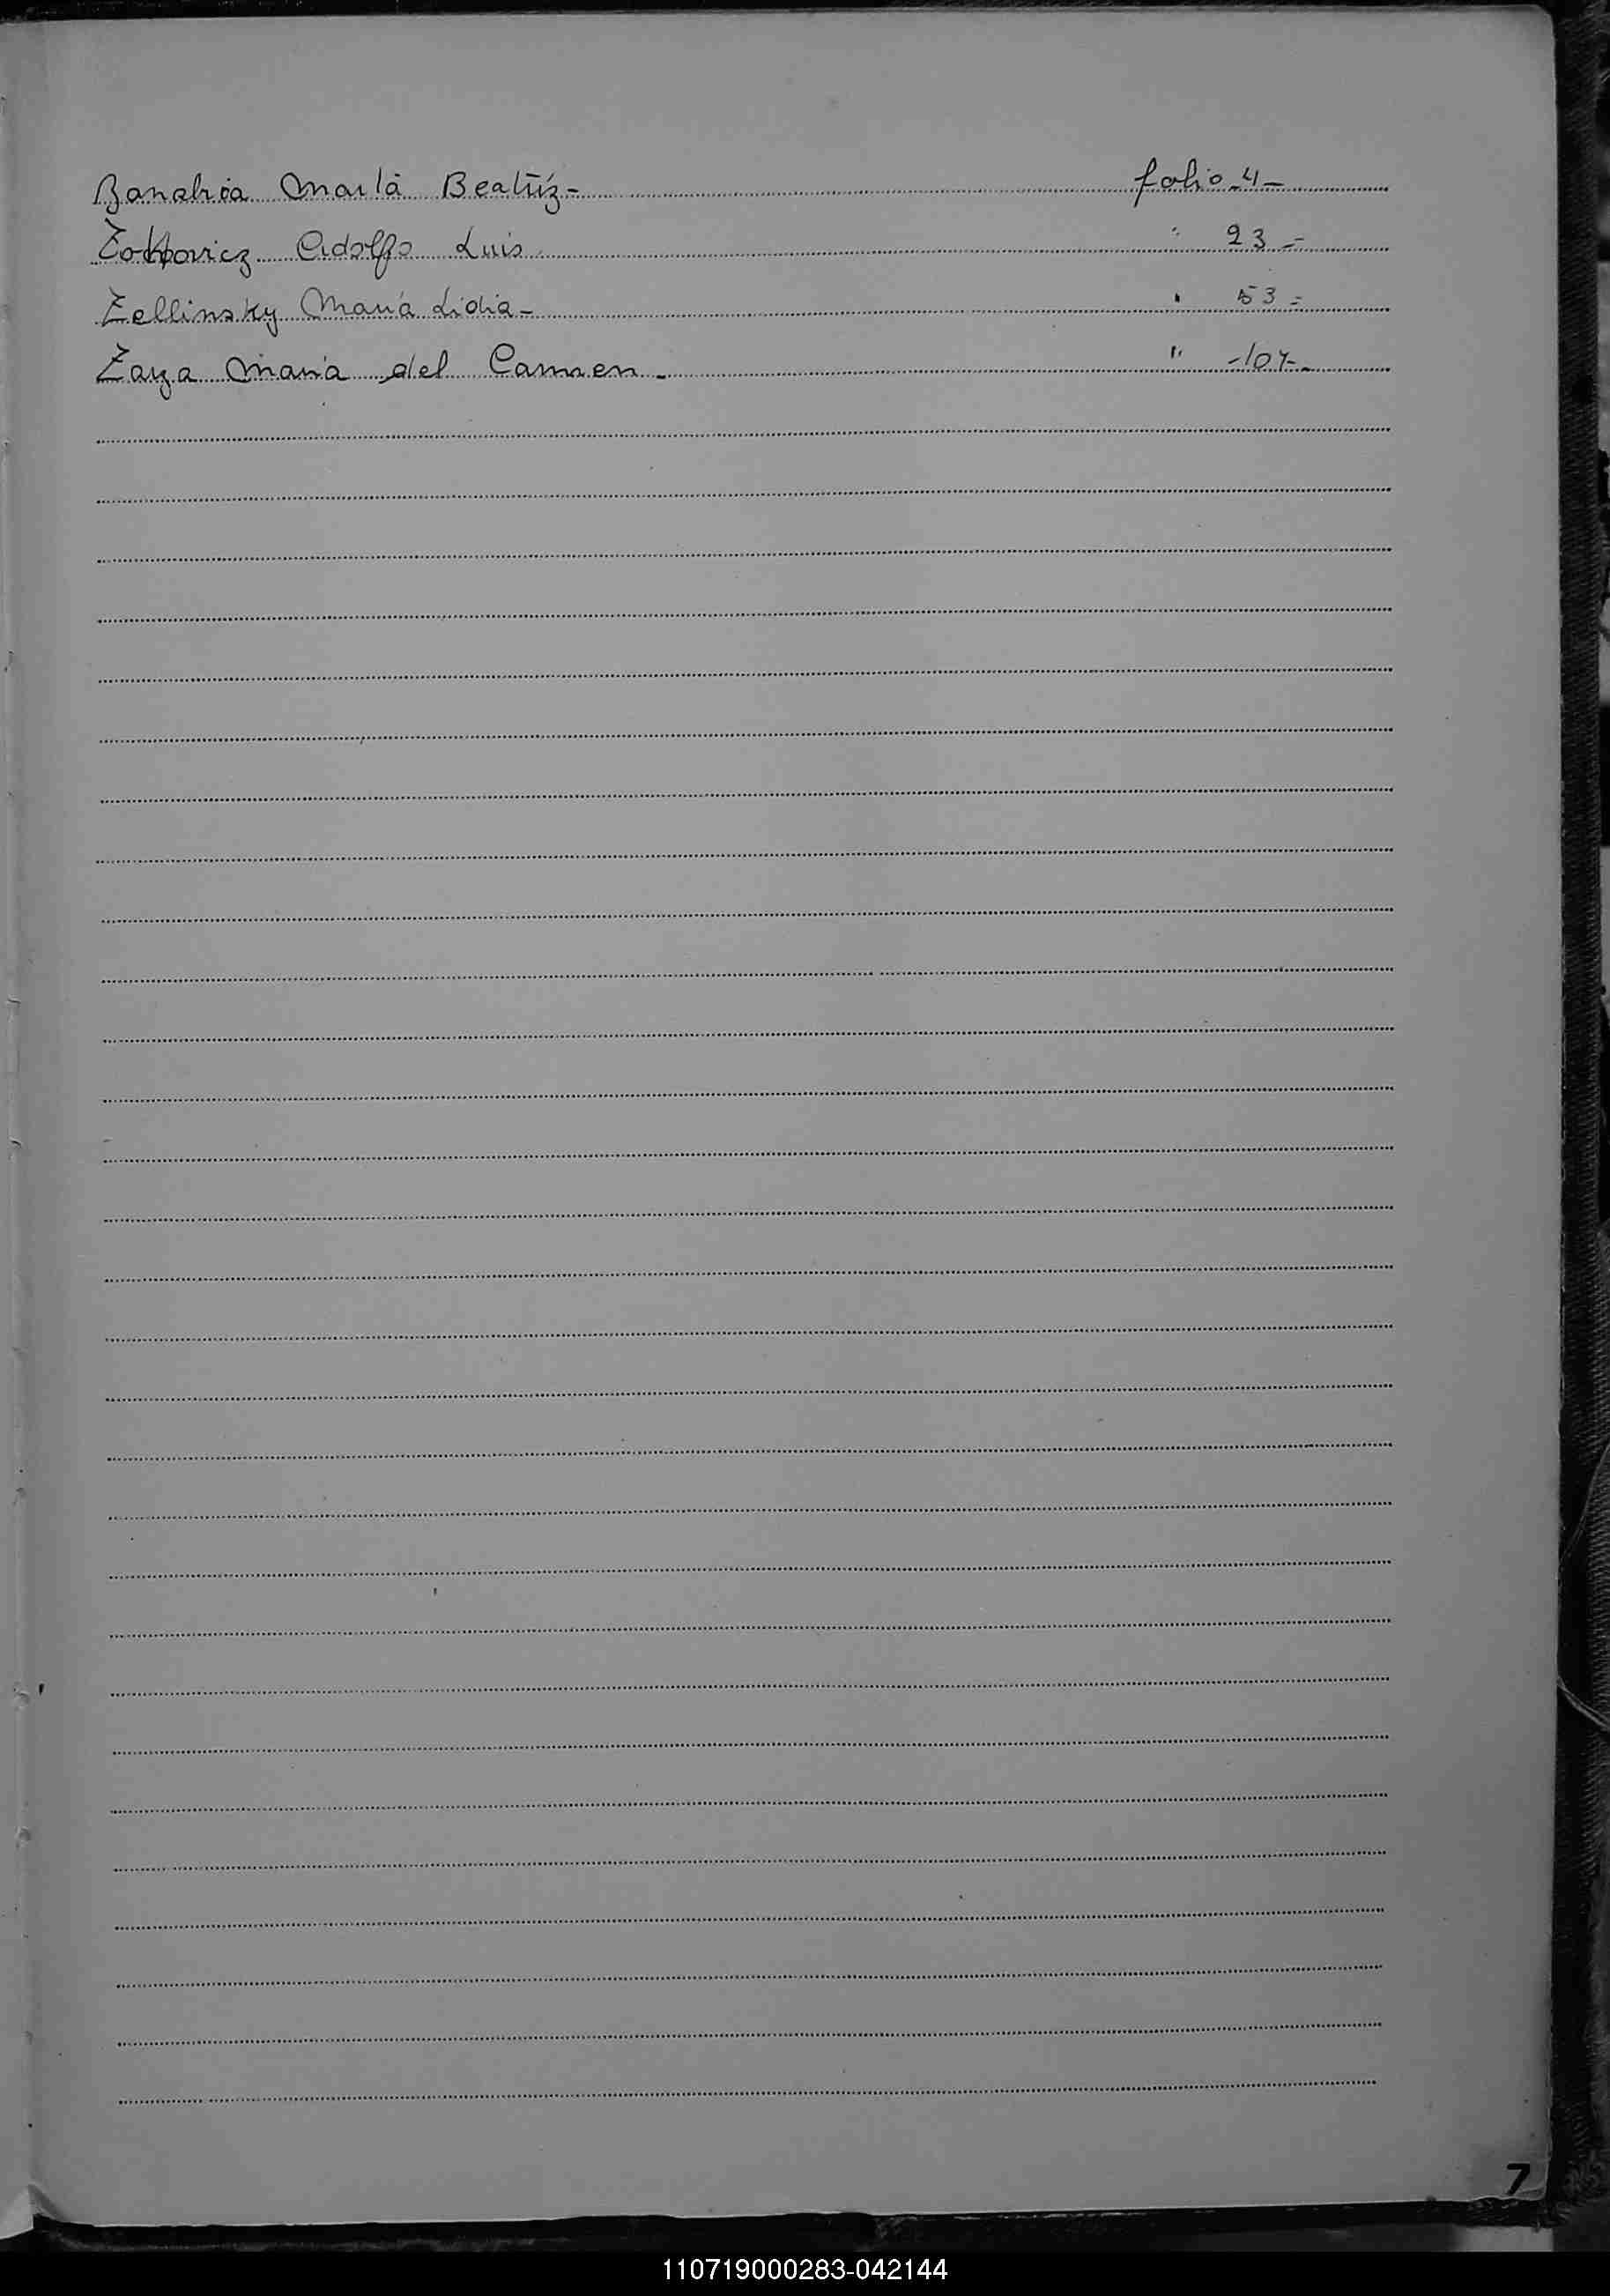 Marta Beatríz- folio-4-
Adolfo Luis " 23-
Zellinsky María Lidia- " 53-
Zaza María del Carmen- " -107-
7
110719000283-042144